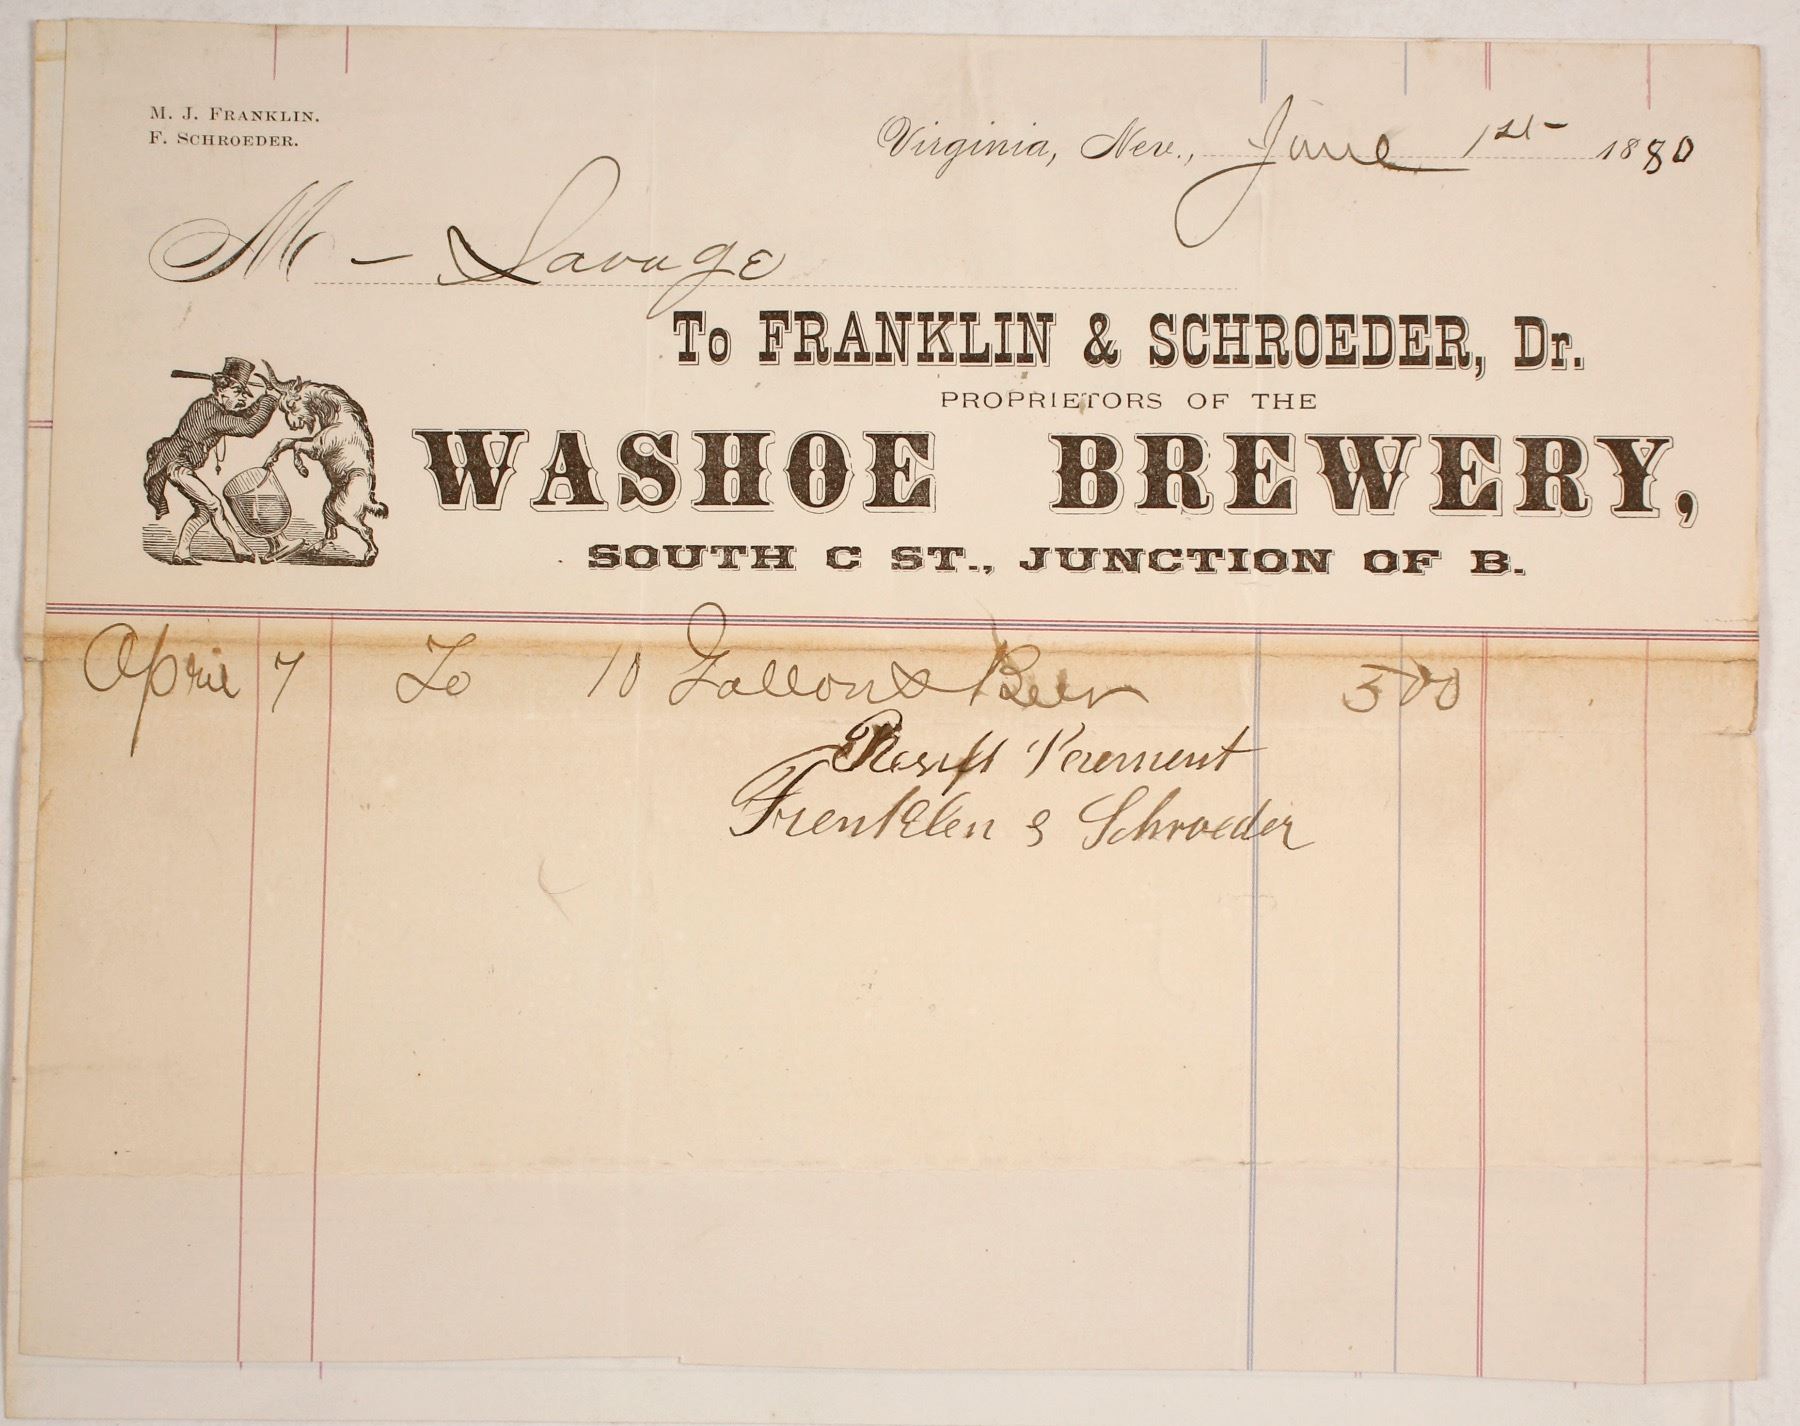 M. J. FRANKLIN.
F. SCHROEDER.
Virginia, Nev., June 1st 1880
M - Savage
To FRANKLIN & SCHROEDER, Dr.
PROPRIETORS OF THE
WASHOE BREWERY,
SOUTH C ST., JUNCTION OF B.
April 7 To 10 Gallons Beer 5 00
Frenklen & Schroeder